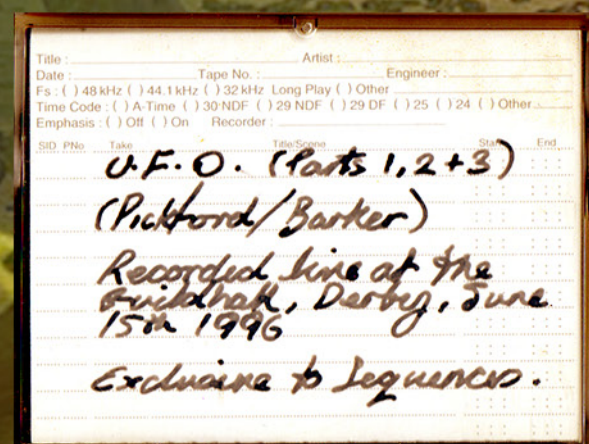 Title : Artist :
Date : Tape No. : Engineer :
Fs : ( ) 48 kHz ( ) 44.1 kHz ( ) 32 kHz Long Play ( ) Other
Time Code : ( ) A-Time ( ) 30 NDF ( ) 29 NDF ( ) 29 DF ( ) 25 ( ) 24 ( ) Other
Emphasis : ( ) Off ( ) On Recorder :
SID PNo Take Title/Scene Start End
U.F.O. (Parts 1, 2 + 3)
(Pickford/Barker)
Recorded live at the
Guildhall, Derby, June
15th 1996
Exclusive to Sequences.